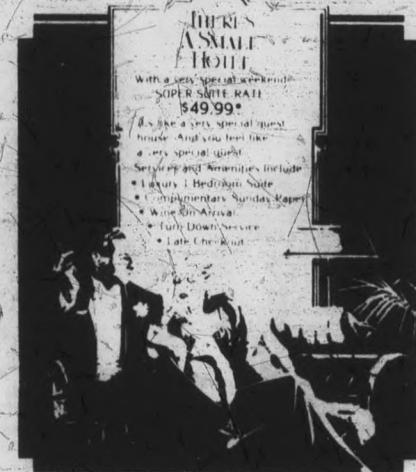 THERE'S
A SMALL
HOTEL
With a very special weekend
SUPER SUITE RATE
$49.99*
It's like a very special guest
house. And you feel like
a very special guest.
Services and Amenities Include
• Luxury 1 Bedroom Suite
• Complimentary Sunday Paper
• Wine On Arrival
• Turn Down Service
• Late Checkout